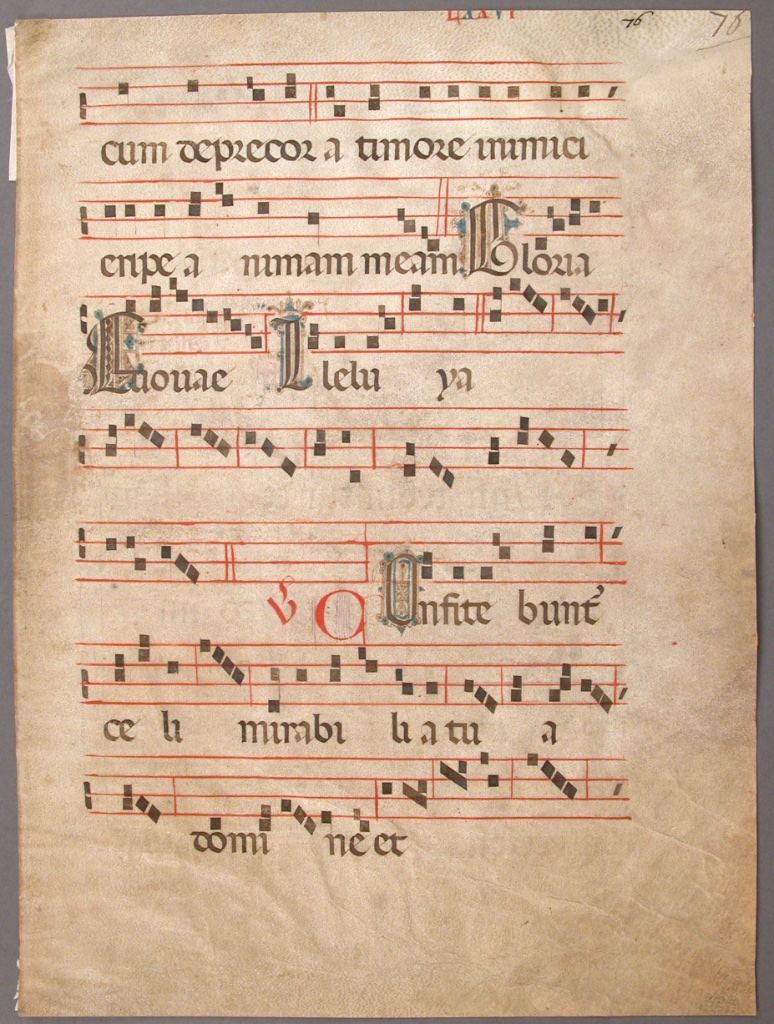 LXXVI 76 76
cum deprecor a timore inimici
eripe a nimam meam Gloria
Euouae A lelu ya
℣ C Onfite bunt᷑
ce li mirabi li a tu a
domi ne et